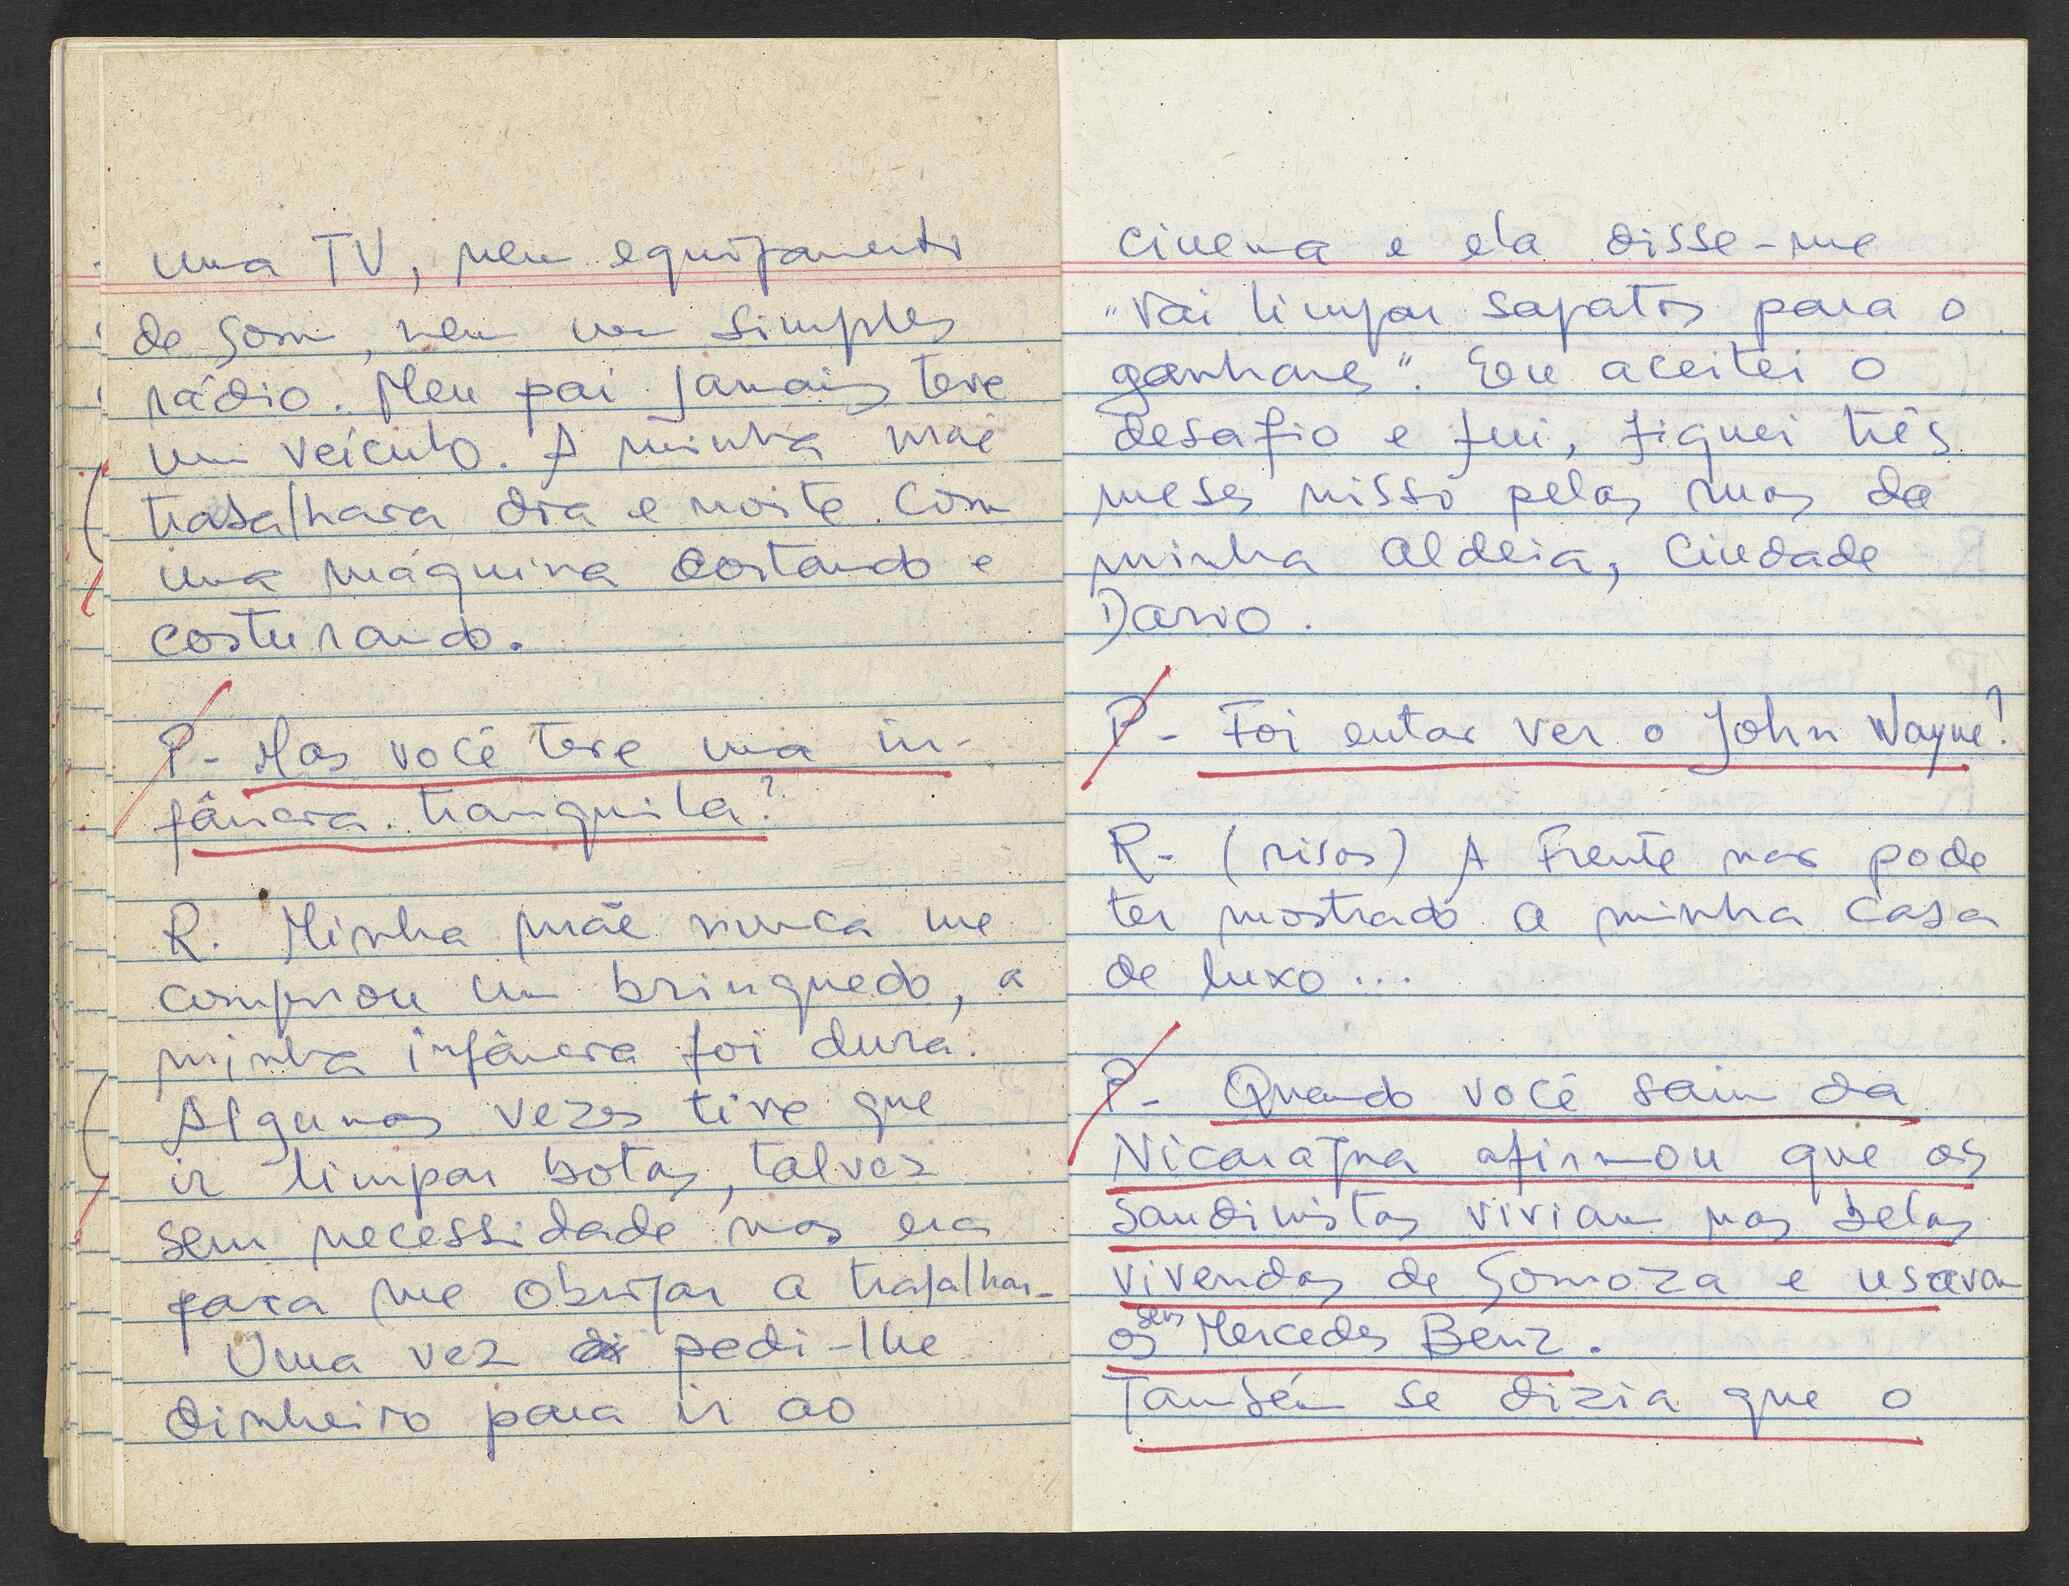 uma TV, nem equipamento
de som, nem um simples
rádio. Meu pai jamais teve
um veículo. A minha mãe
trabalhava dia e noite com
uma máquina cortando e
costurando.
P- Mas você teve uma in-
fância tranquila?
R. Minha mãe nunca me
comprou um brinquedo, a
minha infância foi dura.
Algumas vezes tive que
ir limpar botas, talvez
sem necessidade mas era
para me obrigar a trabalhar-
Uma vez pedi-lhe
dinheiro para ir ao
cinema e ela disse-me
"vai limpar sapatos para o
ganhares". Eu aceitei o
desafio e fui, fiquei três
meses nisso pelas ruas da
minha aldeia, Ciudade
Dario.
P- Foi entao ver o John Wayne?
R- (risos) A Frente nao pode
ter mostrado a minha casa
de luxo...
P- Quando você saiu da
Nicaragua afirmou que os
sandinistas viviam nas belas
vivendas de Somoza e usavam
os seus Mercedes Benz.
Também se dizia que o